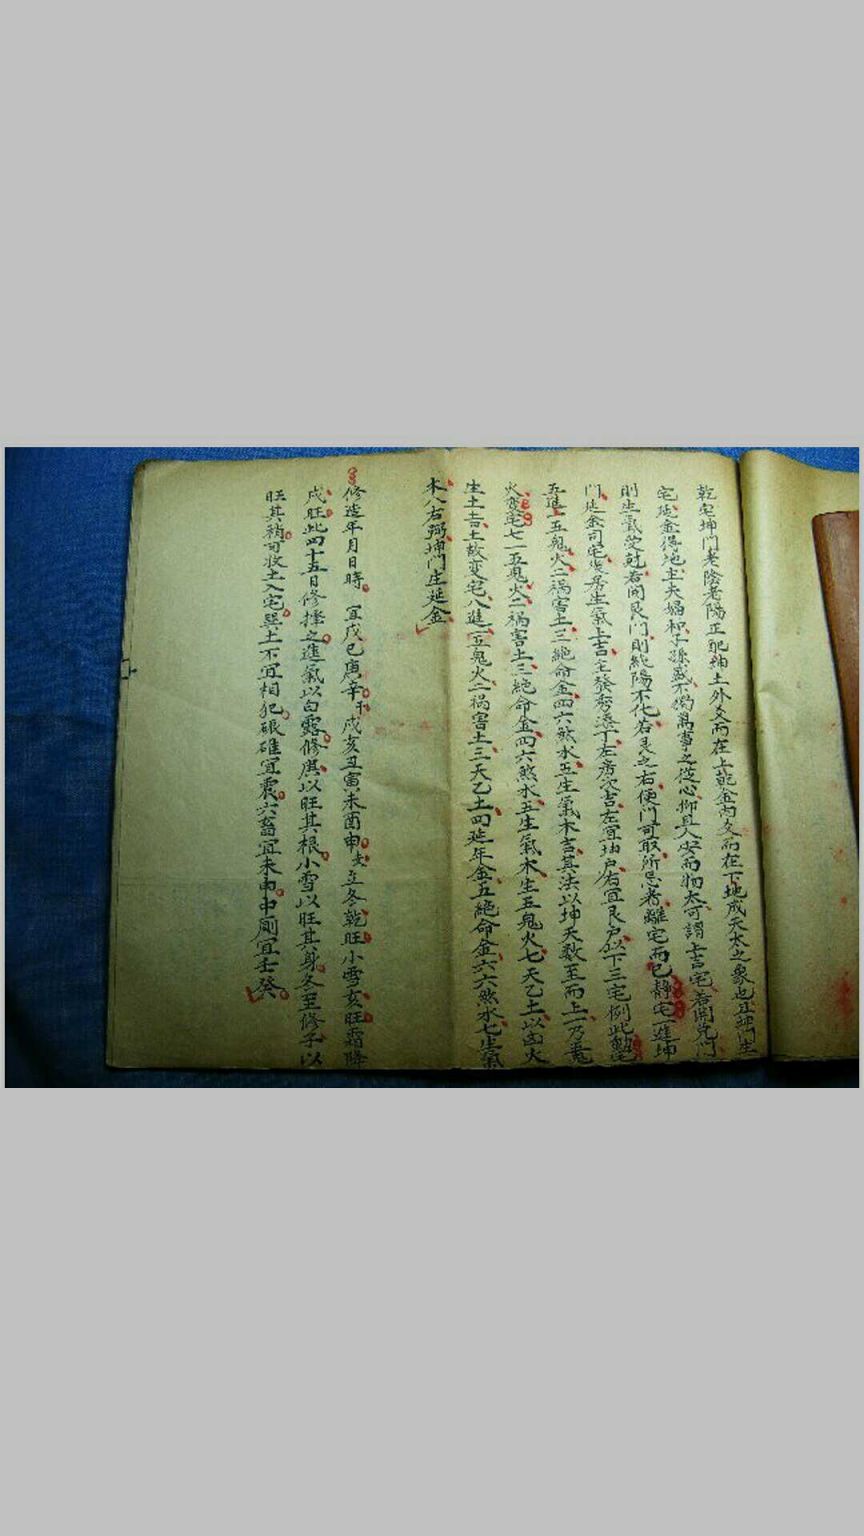 乾宅坤門老陰老陽正配紳土外爻而在上乾金內爻而在下地成天太之象也且坤門生
宅延金得地主夫婦和子孫盛不獨萬事之從心抑且人安而物太可謂上吉宅若開兌門
則生氣受尅若開艮門則純陽不化若艮之右便門可取所忌者離宅而已静宅一進坤
門延金司宅安居生氣上吉主發秀添丁左房次吉左宜坤户右宜艮户以下三宅例此動宅
五進一五鬼火二禍害土三絕命金四六煞水五生氣木吉其法以坤天数至而上一乃五鬼
火变宅七一五鬼火二禍害土三絕命金四六煞水五生氣木生五鬼火七天乙土以六火
生土吉土故变宅八進一五鬼火二禍害土三天乙土四延年金五絕命金六六煞水七生氣
木八右弼坤門庄延金
修造年月日時 宜戊己庚辛干戌亥丑寅未酉申支立冬乾旺小雪亥旺霜降
戌旺此四十五日修擇之進氣以白露修庚以旺其根小雪以旺其身冬至修子以
旺其稍可收土入宅巽土不宜相犯碾碓宜震六畜宜未南中廁宜壬癸